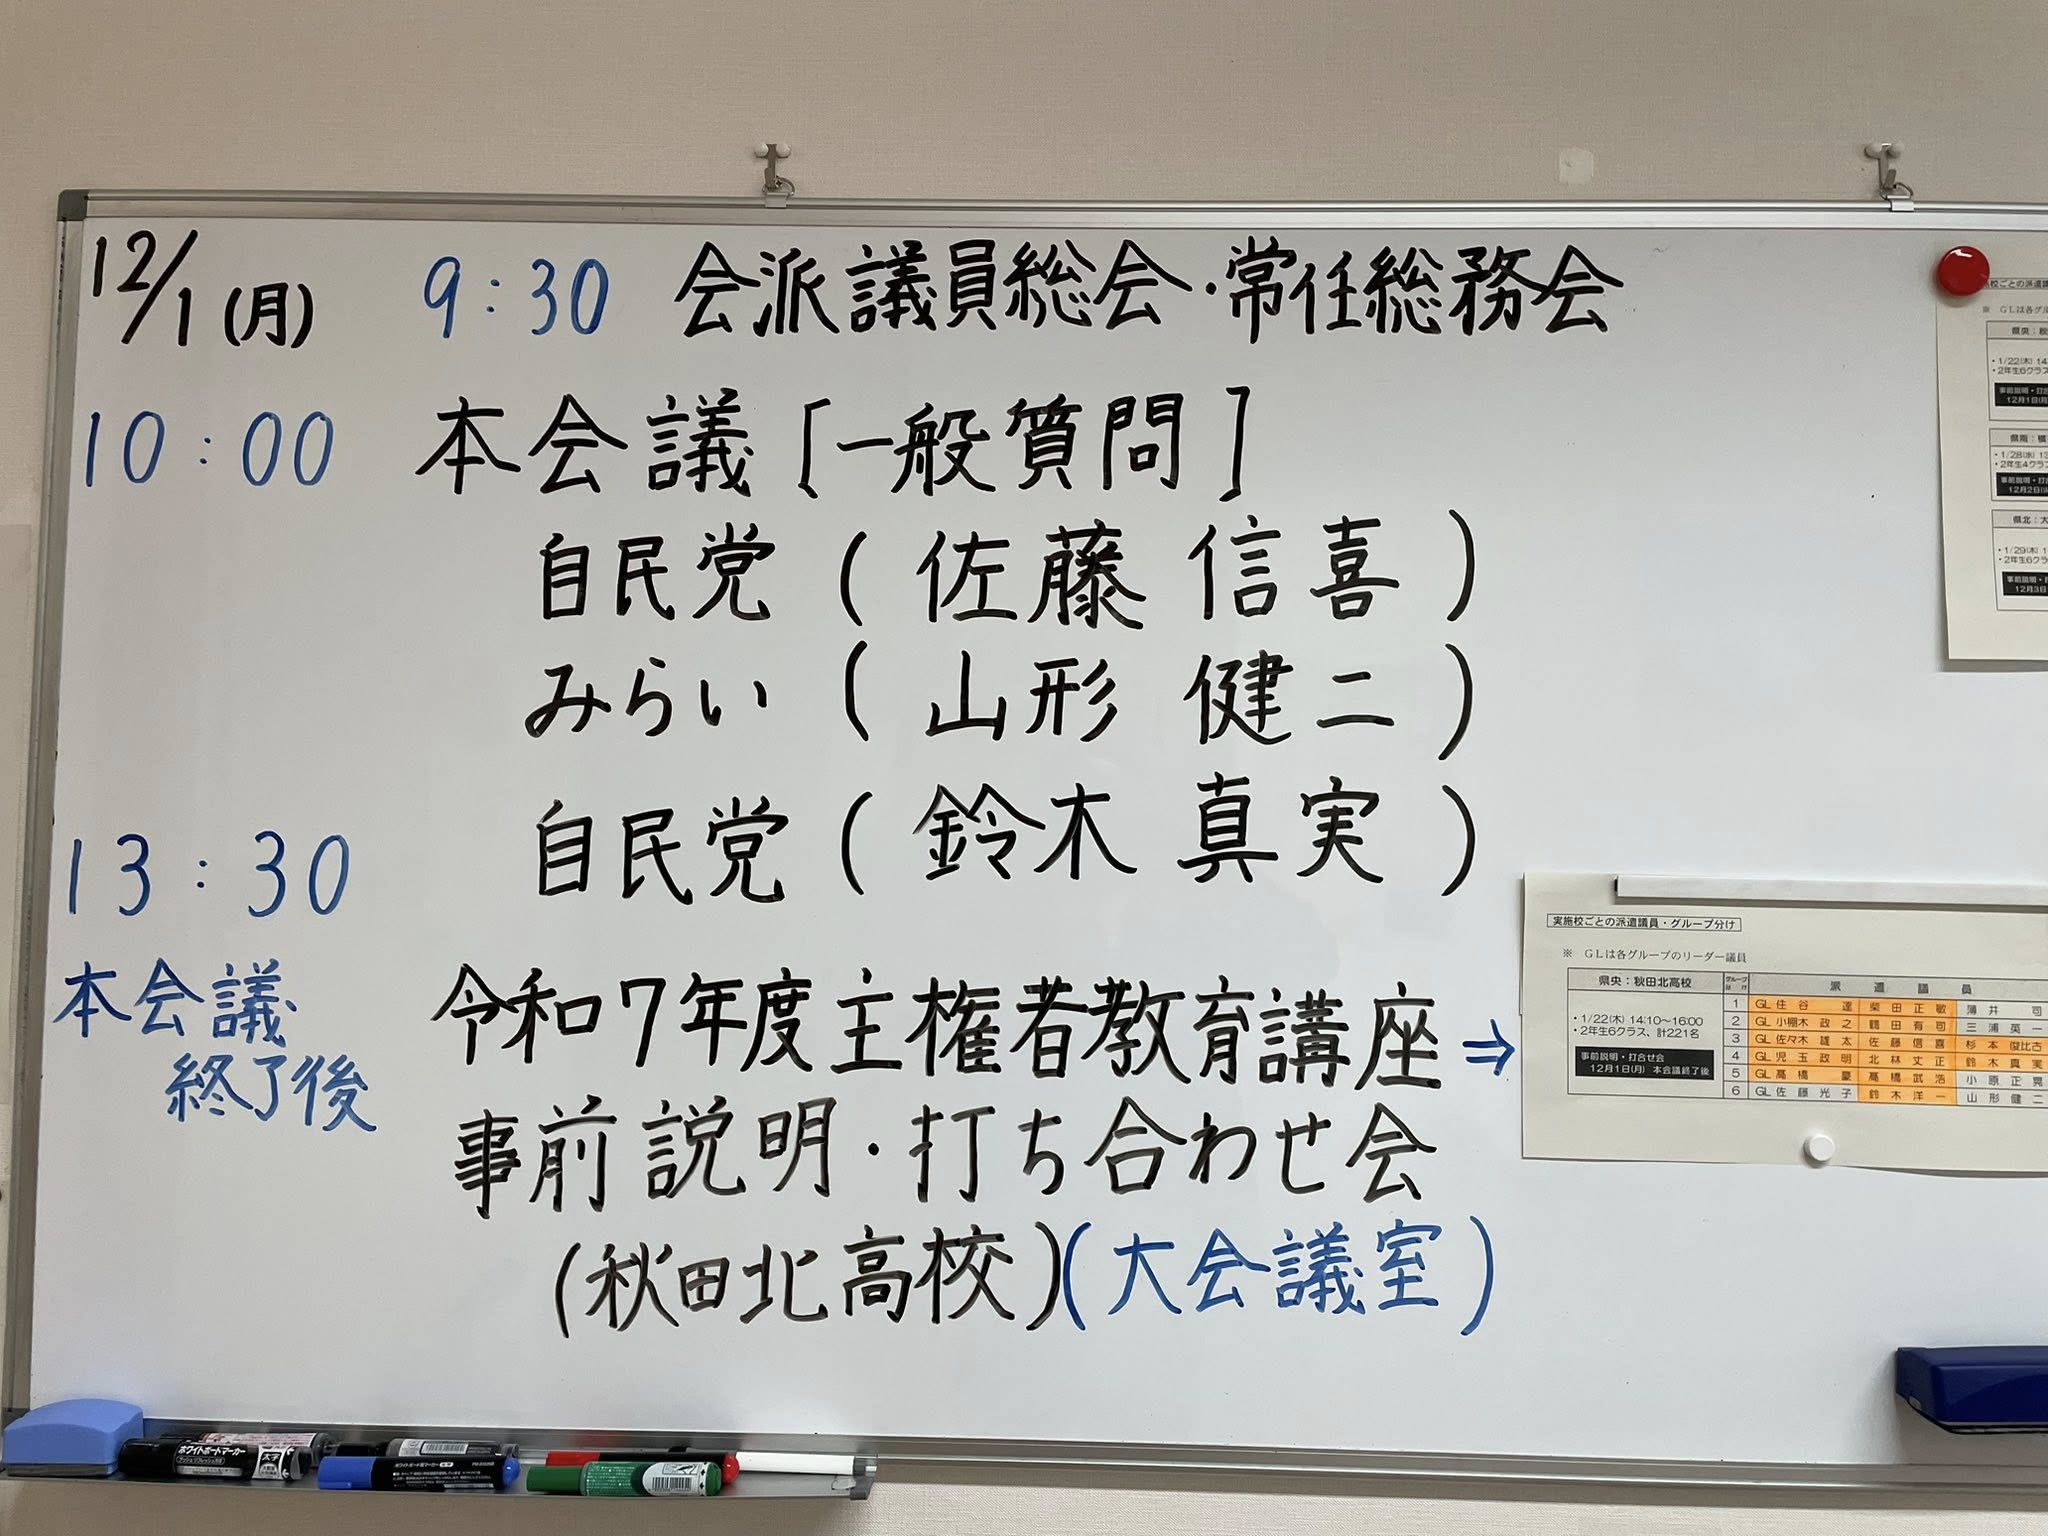 12/1(月) 9:30 会派議員総会・常任総務会
10:00 本会議[一般質問]
自民党(佐藤 信喜)
みらい(山形 健二)
13:30 自民党(鈴木 真実)
本会議終了後 令和7年度主権者教育講座⇒
事前説明・打ち合わせ会
(秋田北高校)(大会議室)
実施校ごとの派遣議員・グループ分け
※ GLは各グループのリーダー議員
県央:秋田北高校
・1/22(木) 14:10~16:00
・2年生6クラス、計221名
事前説明・打合せ会
12月1日(月) 本会議終了後
グループ分け 派遣議員
1 GL 住谷 達 柴田 正敏 薄井 司
2 GL 小棚木 政之 鶴田 有司 三浦 英一
3 GL 佐々木 雄太 佐藤 信喜 杉本 俊比古
4 GL 児玉 政明 北林 丈正 鈴木 真実
5 GL 髙橋 豪 髙橋 武浩 小原 正晃
6 GL 佐藤 光子 鈴木 洋一 山形 健二
※ GLは各グル
・1/22(木) 14
・2年生6クラス
事前説明・打
12月1日(月)
・1/28(水) 13
・2年生4クラス
事前説明・打
12月2日(
県北:大
・1/29(木) 1
・2年生6クラ
事前説明・
12月3日
ホワイトボードマーカー
太字